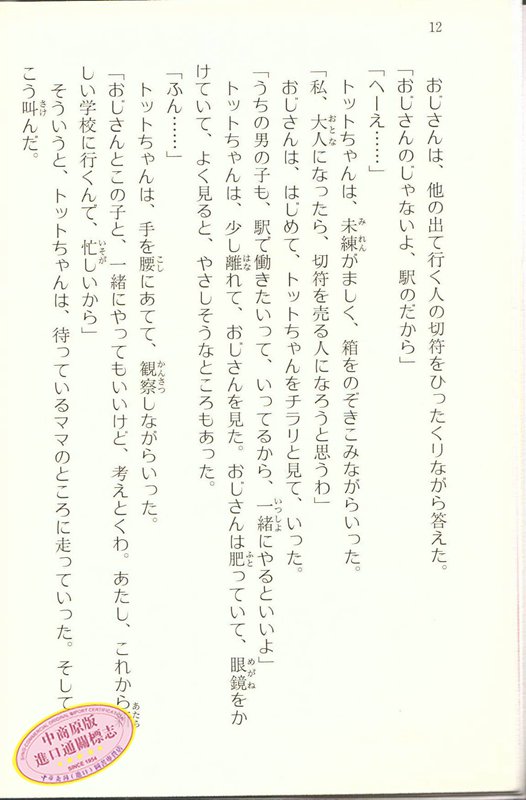 12
おじさんは、他の出て行く人の切符をひったくりながら答えた。
「おじさんのじゃないよ、駅のだから」
「へーえ……」
トットちゃんは、未練がましく、箱をのぞきこみながらいった。
「私、大人になったら、切符を売る人になろうと思うわ」
おじさんは、はじめて、トットちゃんをチラリと見て、いった。
「うちの男の子も、駅で働きたいって、いってるから、一緒にやるといいよ」
トットちゃんは、少し離れて、おじさんを見た。おじさんは肥っていて、眼鏡をか
けていて、よく見ると、やさしそうなところもあった。
「ふん……」
トットちゃんは、手を腰にあてて、観察しながらいった。
「おじさんとこの子と、一緒にやってもいいけど、考えとくわ。あたし、これから新
しい学校に行くんで、忙しいから」
そういうと、トットちゃんは、待っているママのところに走っていった。そして
こう叫んだ。
中商原版
進口通關標志
SINCE 1954